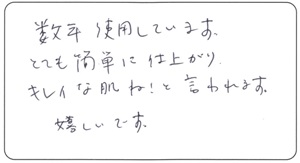 数年使用しています。
とても簡単に仕上がり
キレイな肌ね!と言われます。
嬉しいです。